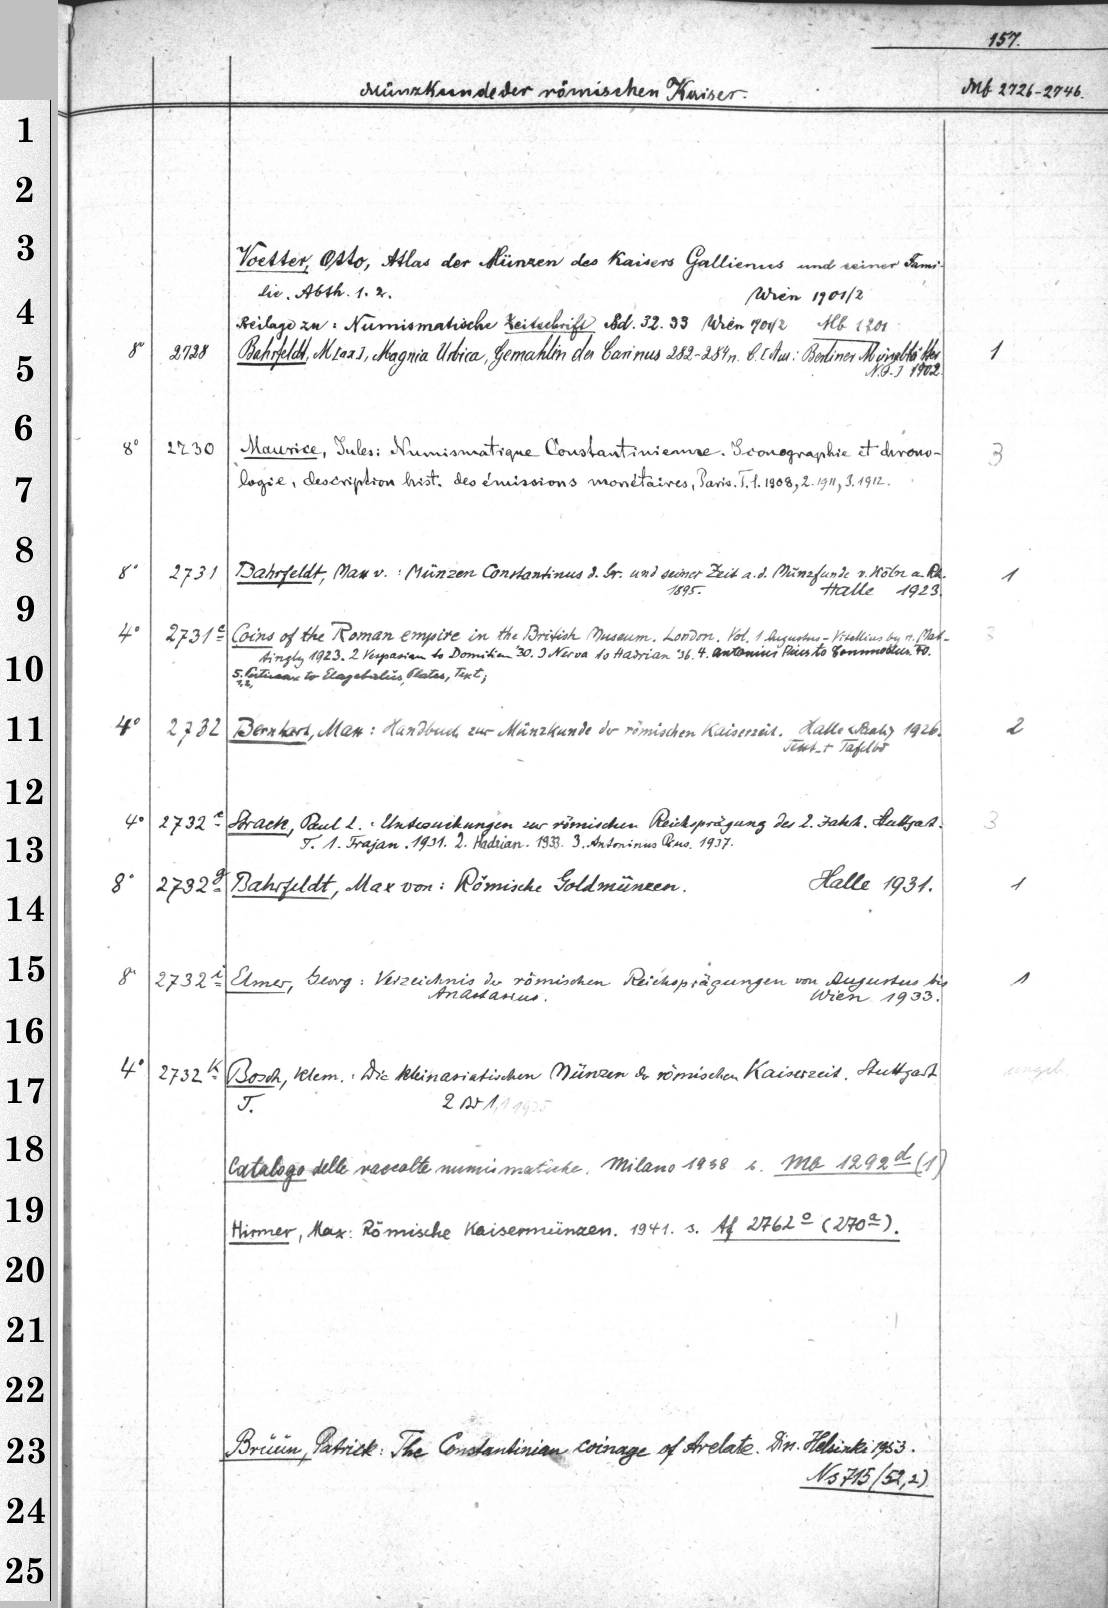 157.
Münzkunde der römischen Kaiser. Mb 2726-2746.
1
2
3
Voetter, Otto, Atlas der Münzen des Kaisers Gallienus und seiner Fami-
lie. Abth. 1. 2. Wien 1901/2
4
Beilage zu: Numismatische Zeitschrift Bd. 32. 33 Wien 1901/2 Mb 1201
5
8° 2728 Bahrfeldt, M[ax], Magnia Urbica, Gemahlin des Carinus 282-284 n. C. [Aus: Berliner Münzblätter 1
N.F.] 1902.
6
8° 2730 Maurice, Jules: Numismatique Constantinienne. Iconographie et chrono- 3
7
logie, description hist. des émissions monétaires, Paris. T. 1. 1908, 2. 1911, 3. 1912.
8
8° 2731 Bahrfeldt, Max v.: Münzen Constantinus d. Gr. und seiner Zeit a. d. Münzfunde v. Köln a. Rh. 1
1895. Halle 1923.
9
4° 2731 e Coins of the Roman empire in the British Museum. London. Vol. 1 Augustus-Vitellius by H. Mat- 3
tingly 1923. 2 Vespasian to Domitian '30. 3 Nerva to Hadrian '36. 4. Antoninus Pius to Commodus 40.
10
5. Pertinax to Elagabalus, Plates, Text;
11
4° 2732 Bernhart, Max: Handbuch zur Münzkunde der römischen Kaiserzeit. Halle (Saale) 1926. 2
Text + Tafelbd
12
4° 2732 e Strack, Paul L.: Untersuchungen zur römischen Reichsprägung des 2. Jahrh. Stuttgart. 3
T. 1. Trajan. 1931. 2. Hadrian. 1933. 3. Antoninus Pius. 1937.
13
8° 2732 g Bahrfeldt, Max von: Römische Goldmünzen. Halle 1931. 1
14
15
8° 2732 i Elmer, Georg: Verzeichnis der römischen Reichsprägungen von Augustus bis 1
Anastasius. Wien 1933.
16
4° 2732 k Bosch, Klem.: Die kleinasiatischen Münzen der römischen Kaiserzeit. Stuttgart
17
T. 2 Bd 1,1 1935
18
Catalogo delle raccolte numismatiche. Milano 1938 s. Mb 1292 d (1)
19
Hirmer, Max: Römische Kaisermünzen. 1941. s. Af 2762 o (270 a).
20
21
22
23
Brüün, Patrick: The Constantinian coinage of Arelate. Diss. Helsinki 1953.
Ns 715/(52,2)
24
25